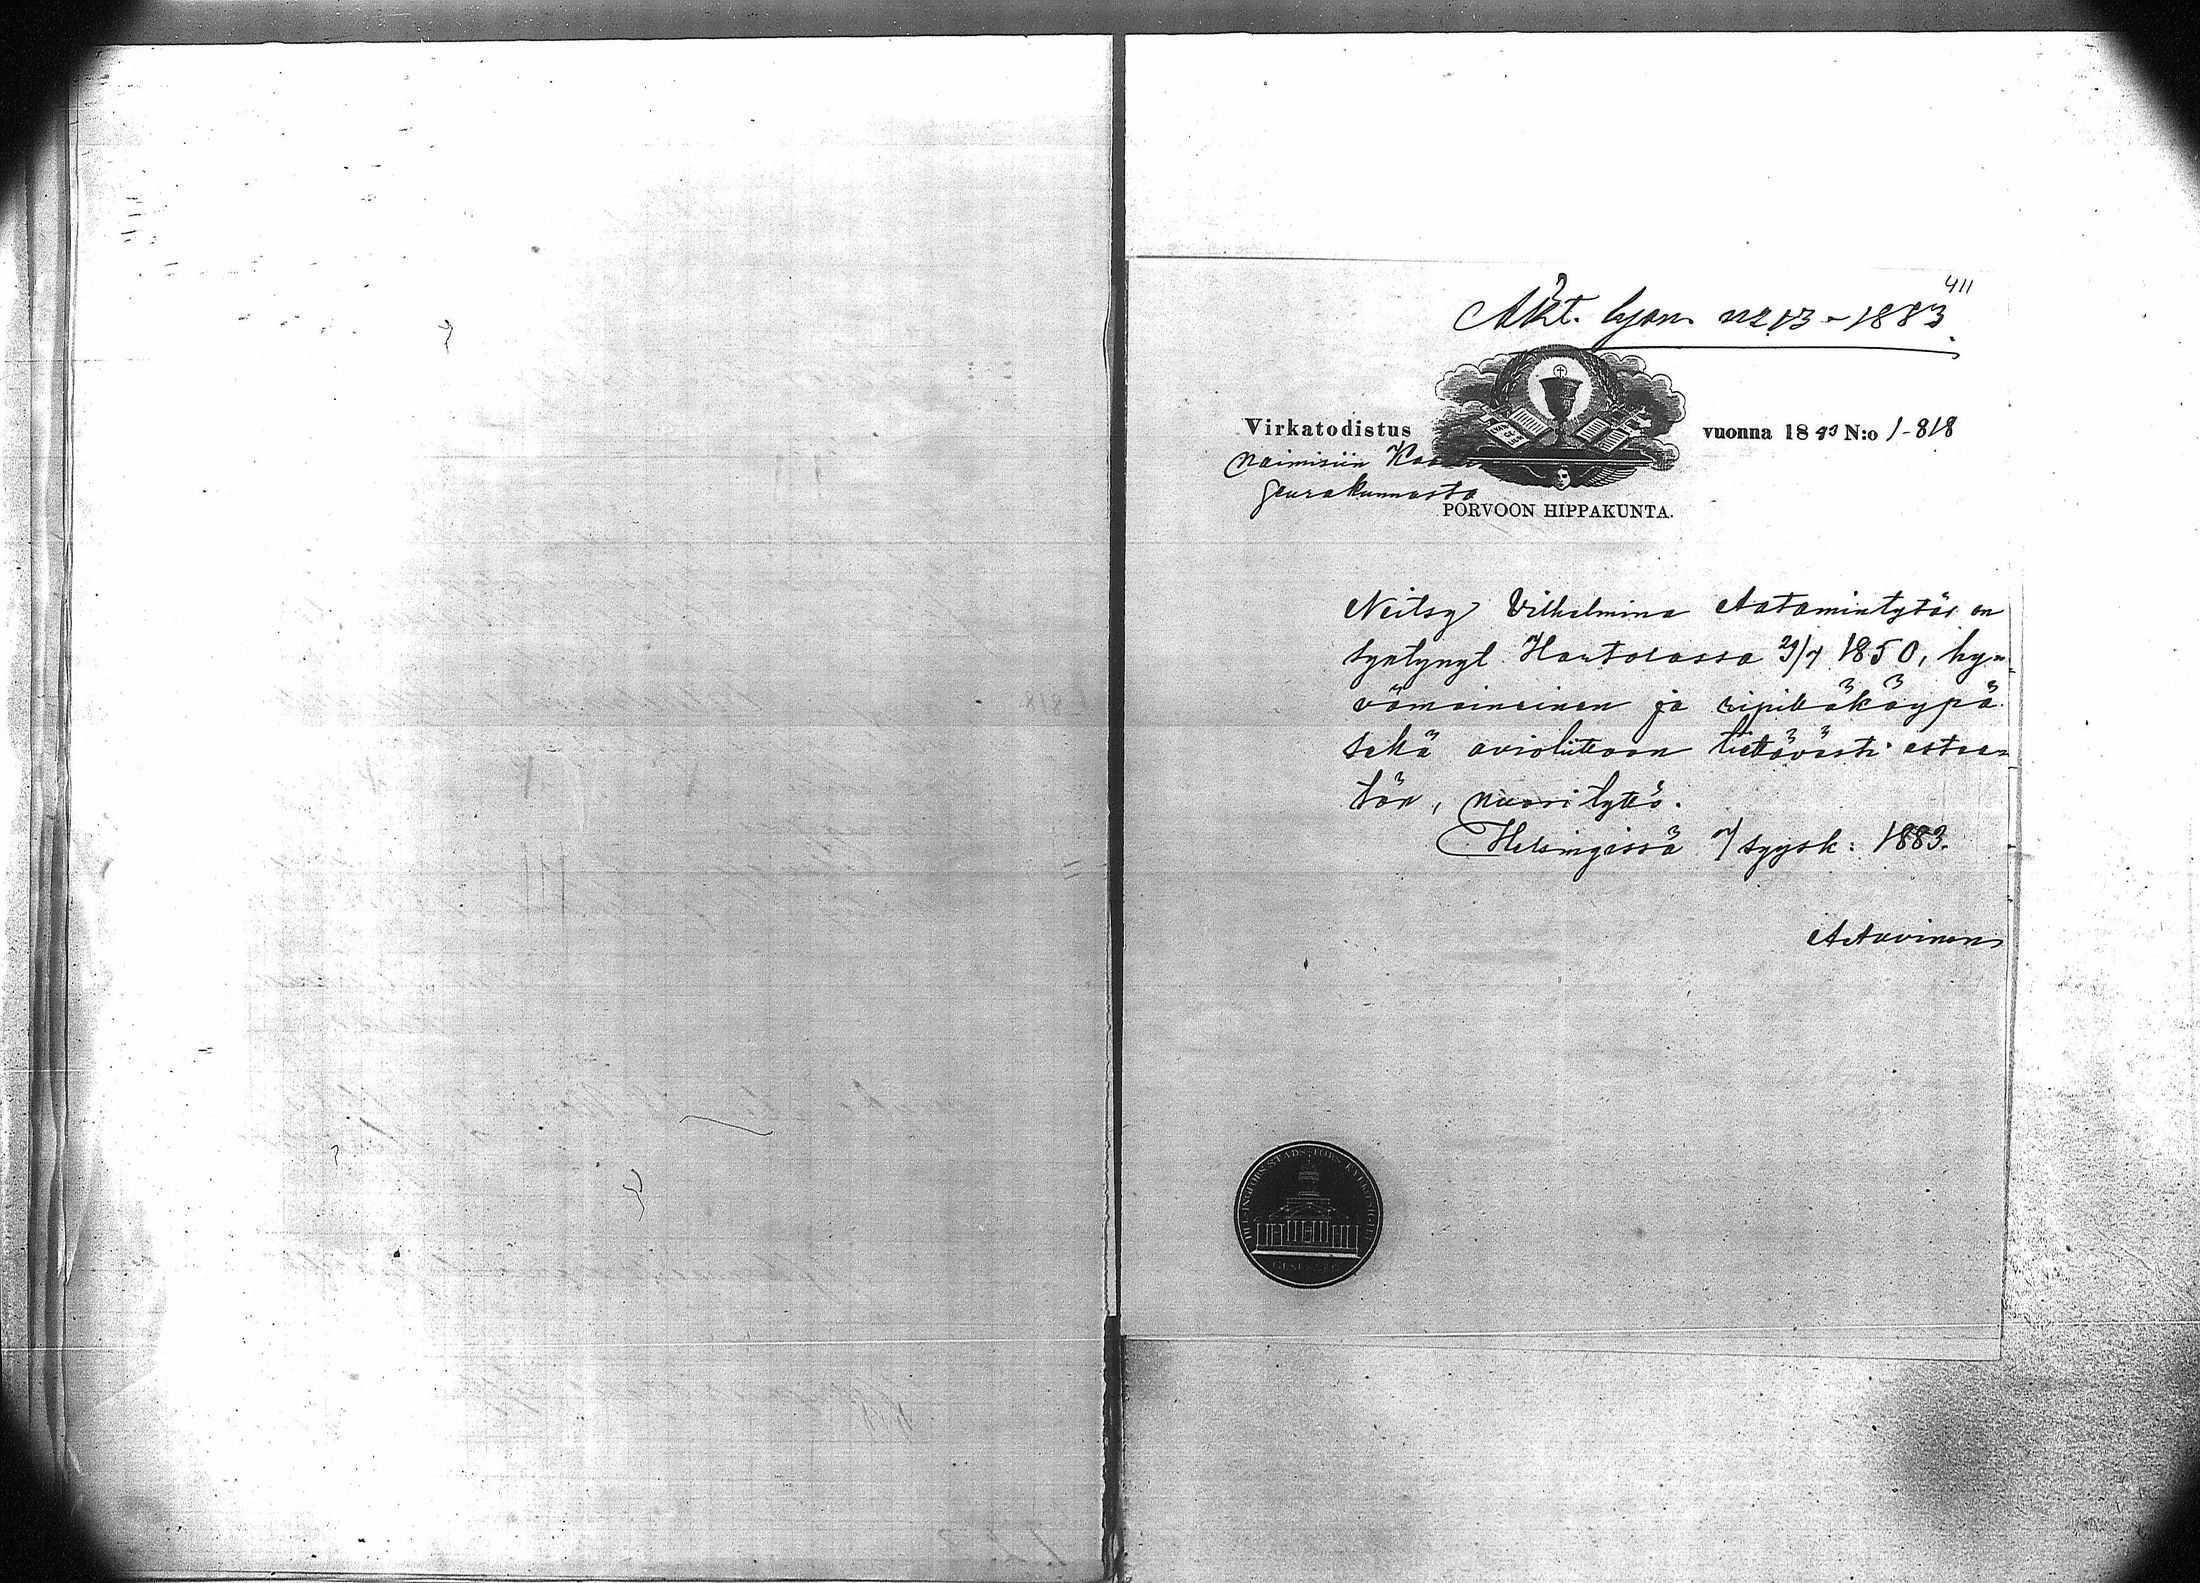 411
Äkt. lysn. No 213 - 1883.
Virkatodistus vuonna 1883 N:o 1-818
naimisiin
seurakunnasta
PORVOON HIPPAKUNTA.
Neitsy Vilhelmina Aatamintytär on
syntynyt Hartolassa 1850, hy-
vämaineinen ja ripilläkäypä
sekä avioliittoon tiettävästi estee-
tön, nuori tyttö.
Helsingissä 7/ syysk: 1883.
HELSINGFORS STADS